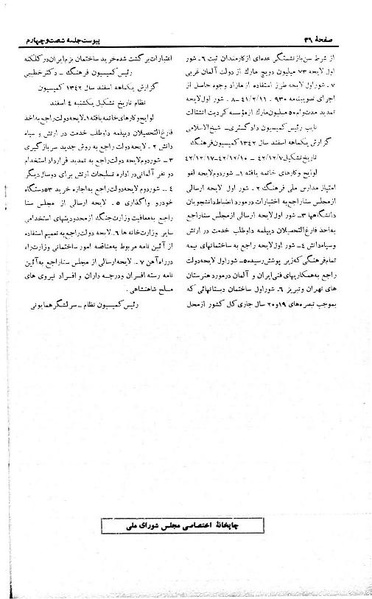 صفحهٔ ۳۶
پیوست جلسه شصت و چهارم
از شرط سن بازنشستگی عده‌ای از کارمندان ثبت ۶ـ شور
اول لایحه ۷۳ میلیون دویچ مارک از دولت آلمان غربی
۷ـ شور اول لایحه طرز استفاده از مازاد وجوه حاصل از
اجرای تصویبنامه ۹۳۰ ـ ۴۱/۲/۱۱ ۸ـ شور اول لایحه
تمدید مدت وام ۵ میلیون مارک از مؤسسه کردیت انشتالت
نایب رئیس کمیسیون دادگستری ـ شیخ‌الاسلامی
گزارش یکماهه اسفند سال ۱۳۴۲ کمیسیون فرهنگ
تاریخ تشکیل ۴۲/۱۲/۷ ـ ۴۲/۱۲/۱۰ ـ ۴۲/۱۲/۱۷
لوایح و کارهای خاتمه یافته ۱ـ شور دوم لایحه لغو
امتیاز مدارس ملی فرهنگ ۲ـ شور اول لایحه ارسالی از
مجلس سنا راجع به اختیارات در مورد انضباط دانشجویان
دانشگاهها ۳ـ شور اول لایحه ارسالی از مجلس سنا راجع
به اخذ فارغ‌التحصیلان دیپلمه داوطلب خدمت در ارتش
و سپاه دانش ۴ـ شور اول لایحه راجع به ساختمانهای نیمه
تمام فرهنگی که زیر پوشش رسیده ۵ـ شور اول لایحه دولت
راجع به همکاریهای فنی ایران و آلمان در مورد هنرستان
های تهران و تبریز ۶ـ شور اول ساختمان دبستانهائی که
بموجب تبصره‌های ۱۹ و ۲۰ سال جاری کل کشور از محل
اعتبارات برگشت شده خرید ساختمان مزم ایران در کلکته
رئیس کمیسیون فرهنگ ـ دکتر خطیبی
گزارش یکماهه اسفند سال ۱۳۴۲ کمیسیون
نظام تاریخ تشکیل یکشنبه ۴ اسفند
لوایح و کارهای خاتمه یافته ۱ـ لایحه دولت راجع به اخذ
فارغ‌التحصیلان دیپلمه داوطلب خدمت در ارتش و سپاه
دانش ۲ـ لایحه دولت راجع به روش جدید سربازگیری
۳ـ شور دوم لایحه دولت راجع به تمدید قرارداد استخدام
دو نفر آلمانی در اداره تسلیحات ارتش برای دو سال دیگر
۴ـ شور دوم لایحه دولت راجع به اجازه خرید ۵۳ دستگاه
خودرو و واگذاری ۵ـ لایحه ارسالی از مجلس سنا
راجع به معافیت وزارت جنگ از محدودیتهای استخدامی
سایر وزارتخانه‌ها ۶ـ لایحه دولت راجع به تعمیم استفاده
از آئین نامه مربوط به مناقصه امور ساختمانی وزارت راه
در راه آهن ۷ـ لایحه ارسالی از مجلس سنا راجع به آئین
نامه رسته افسران و درجه داران و افراد نیروی های
مسلح شاهنشاهی.
رئیس کمیسیون نظام ـ سرلشگر همایونی
چاپخانهٔ اختصاصی مجلس شورای ملی